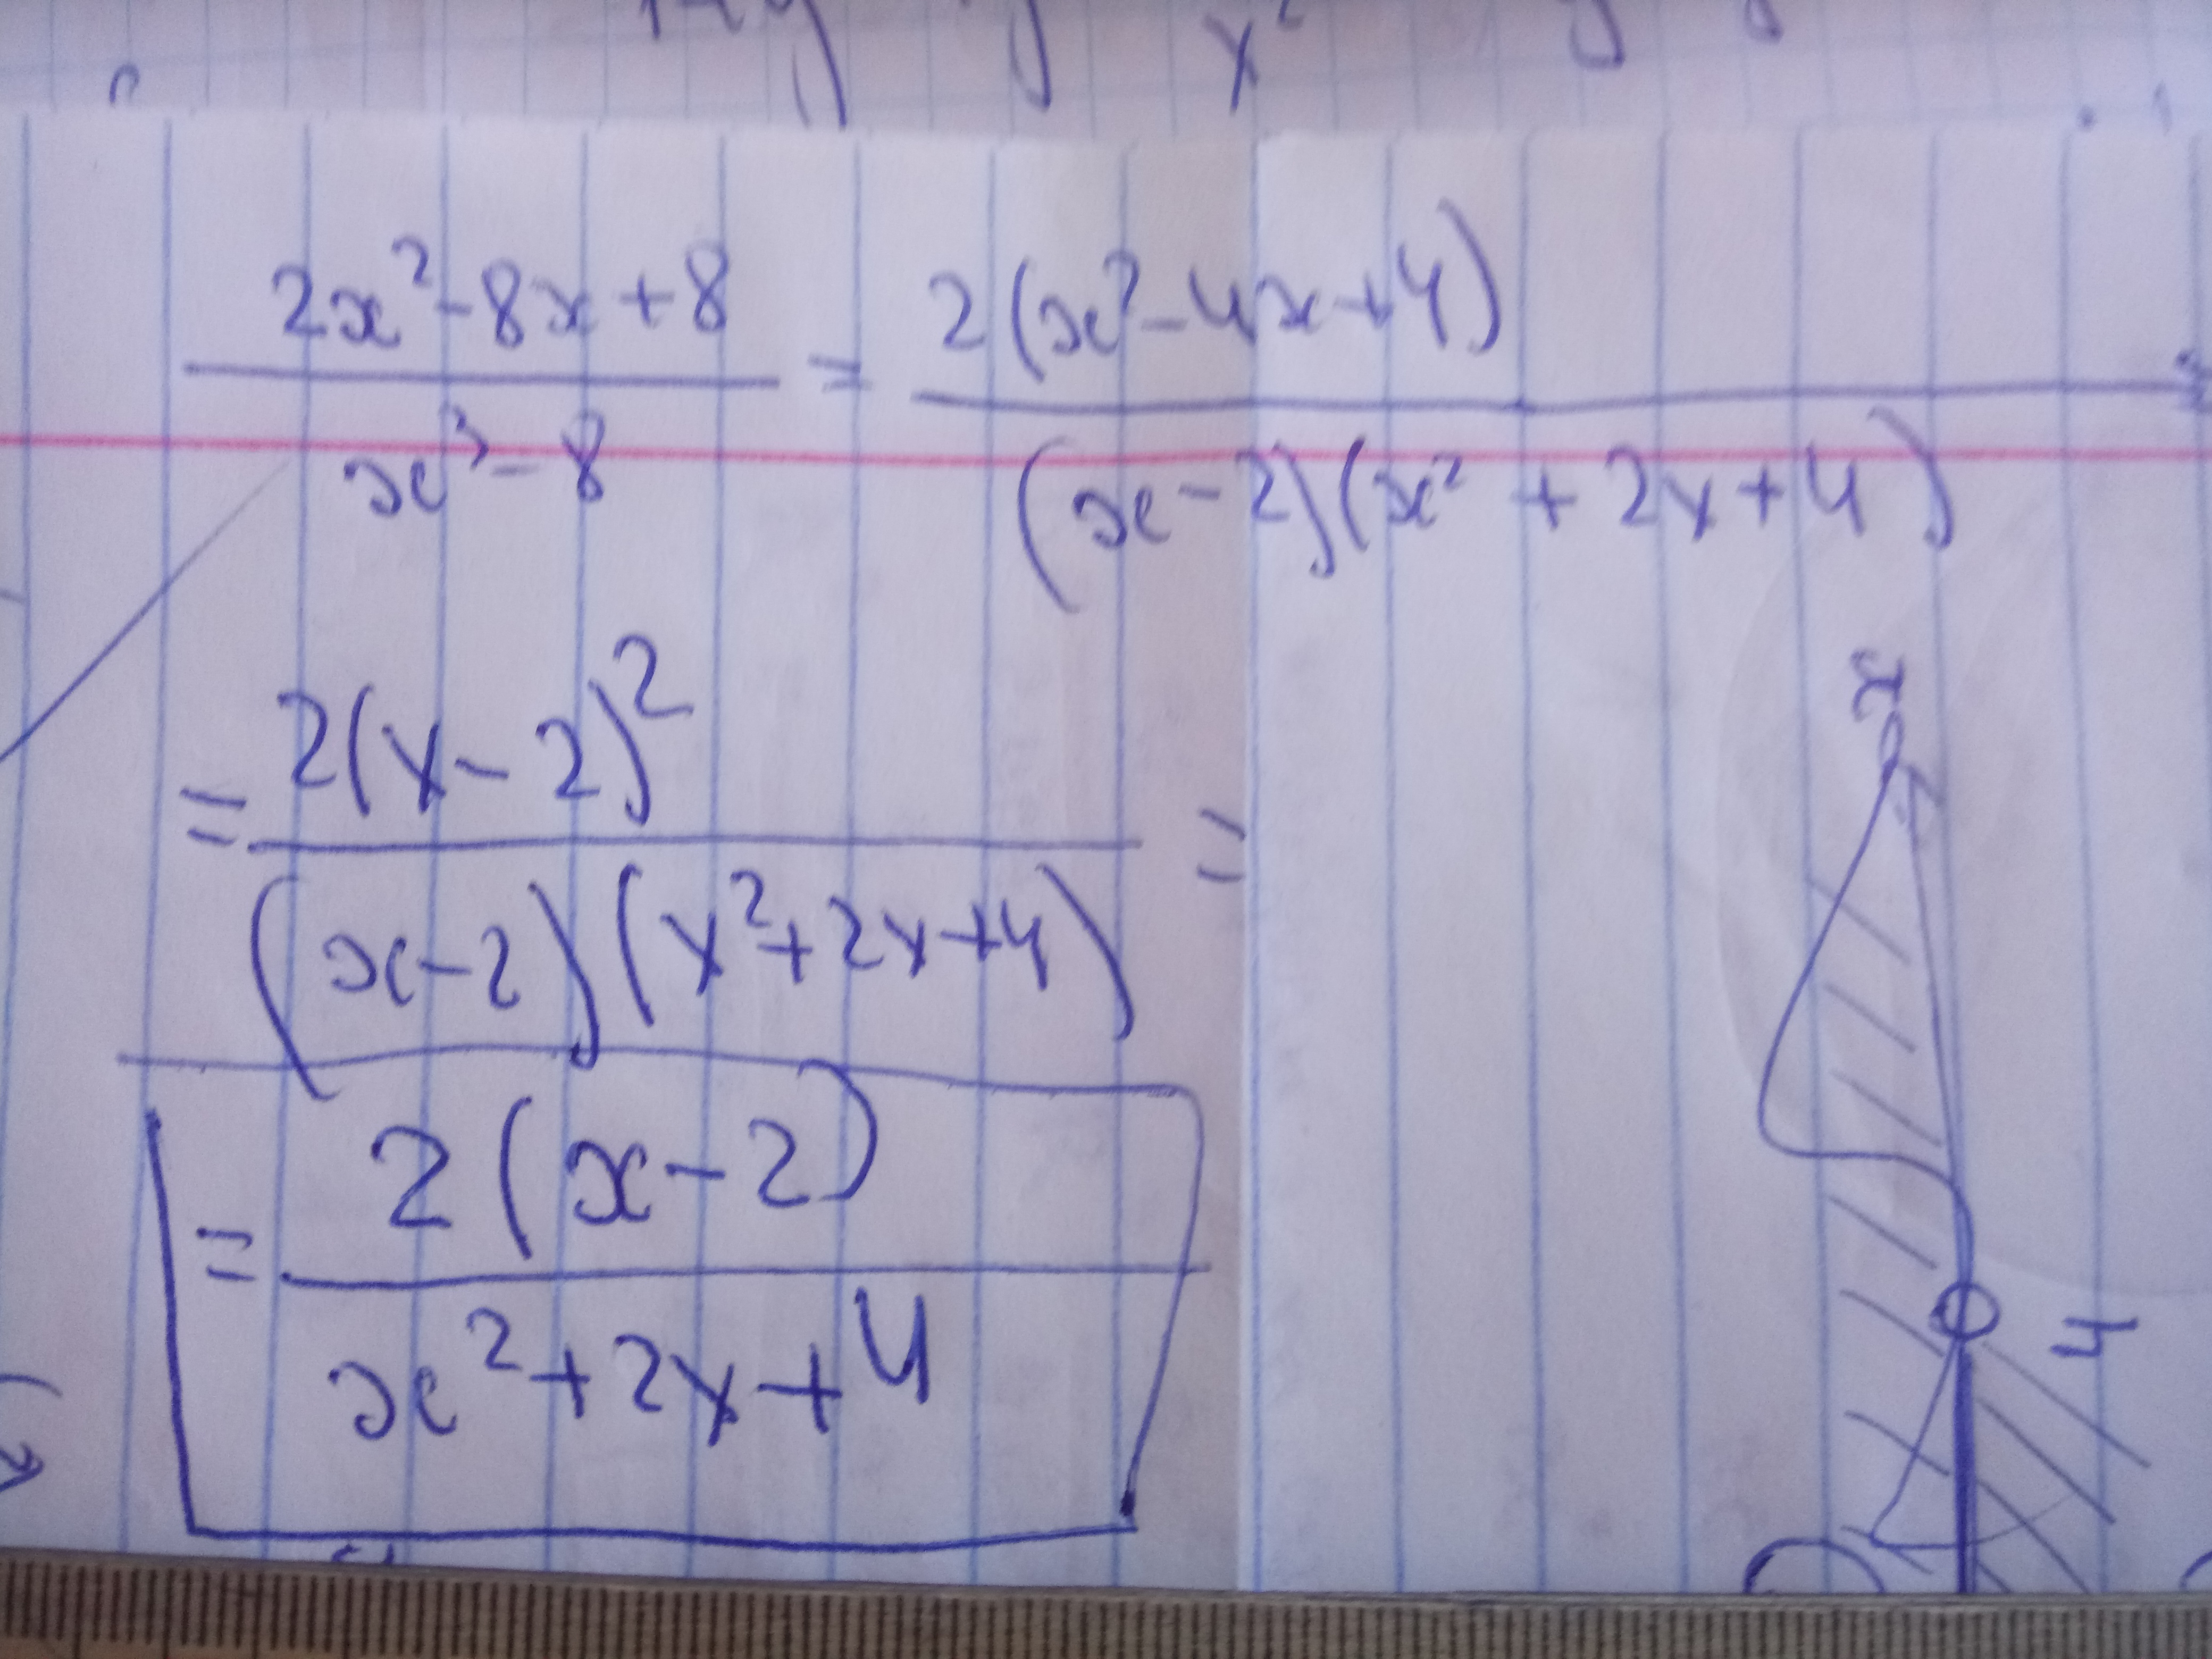 x²
(2x² - 8x + 8)/(x³ - 8) = 2(x² - 4x + 4)/((x - 2)(x² + 2x + 4)) =
= 2(x - 2)²/((x - 2)(x² + 2x + 4)) =
= 2(x - 2)/(x² + 2x + 4)
x
4